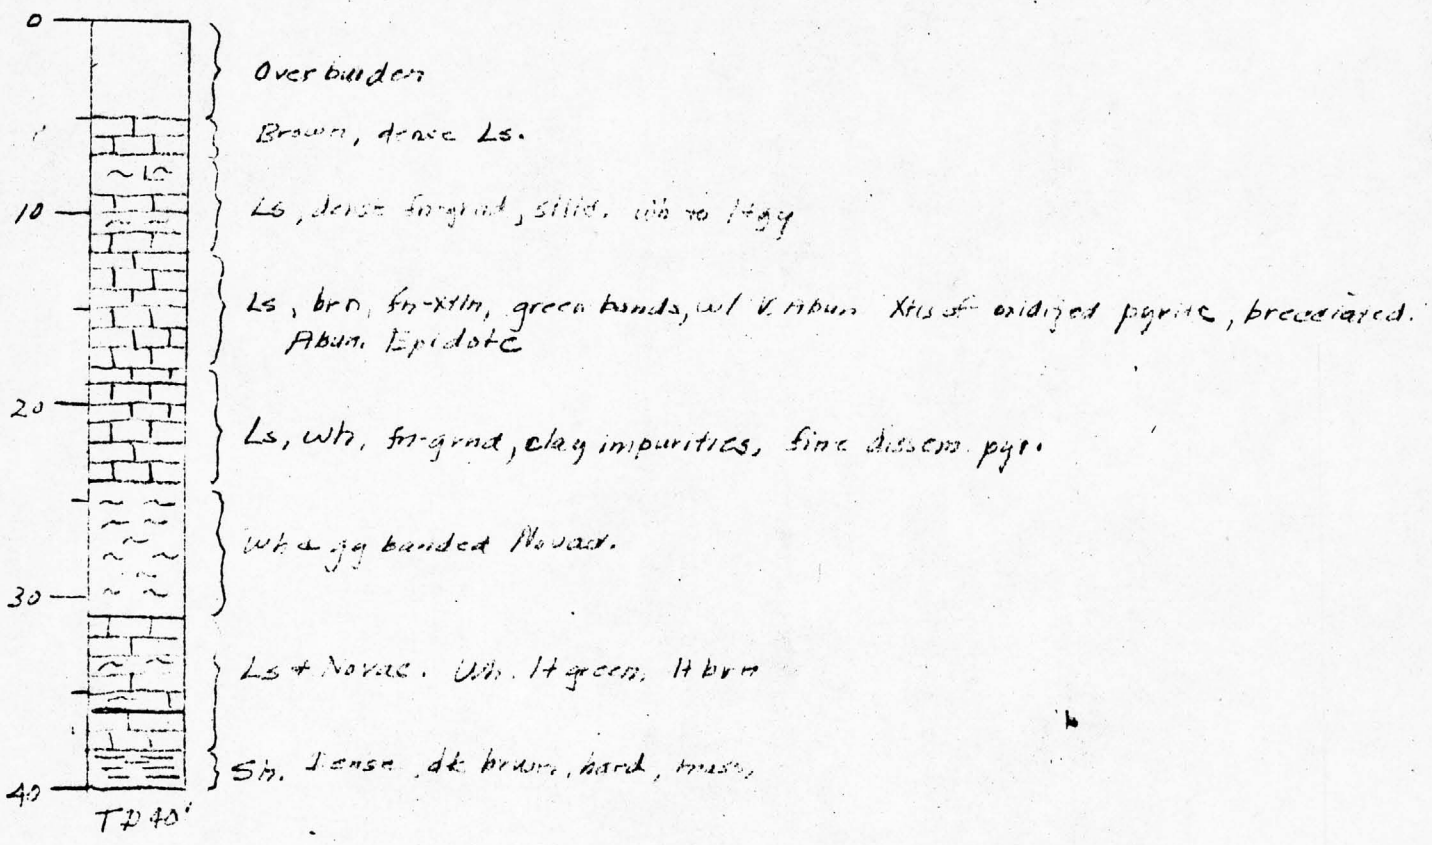 0
Overburden
Brown, dense Ls.
10
Ls, dense fn-grnd, silic. wh to lt gy
Ls, brn, fn-xtln, green bands, w/ V. Abun Xtls of oxidized pyrite, brecciated.
Abun. Epidote
20
Ls, wh, fn-grnd, clay impurities, fine dissem. pyr.
Wh & gy banded Novac.
30
Ls + Novac. Wh. lt green, lt brn
Sh. Dense, dk brwn, hard, mass.
40
TD 40'